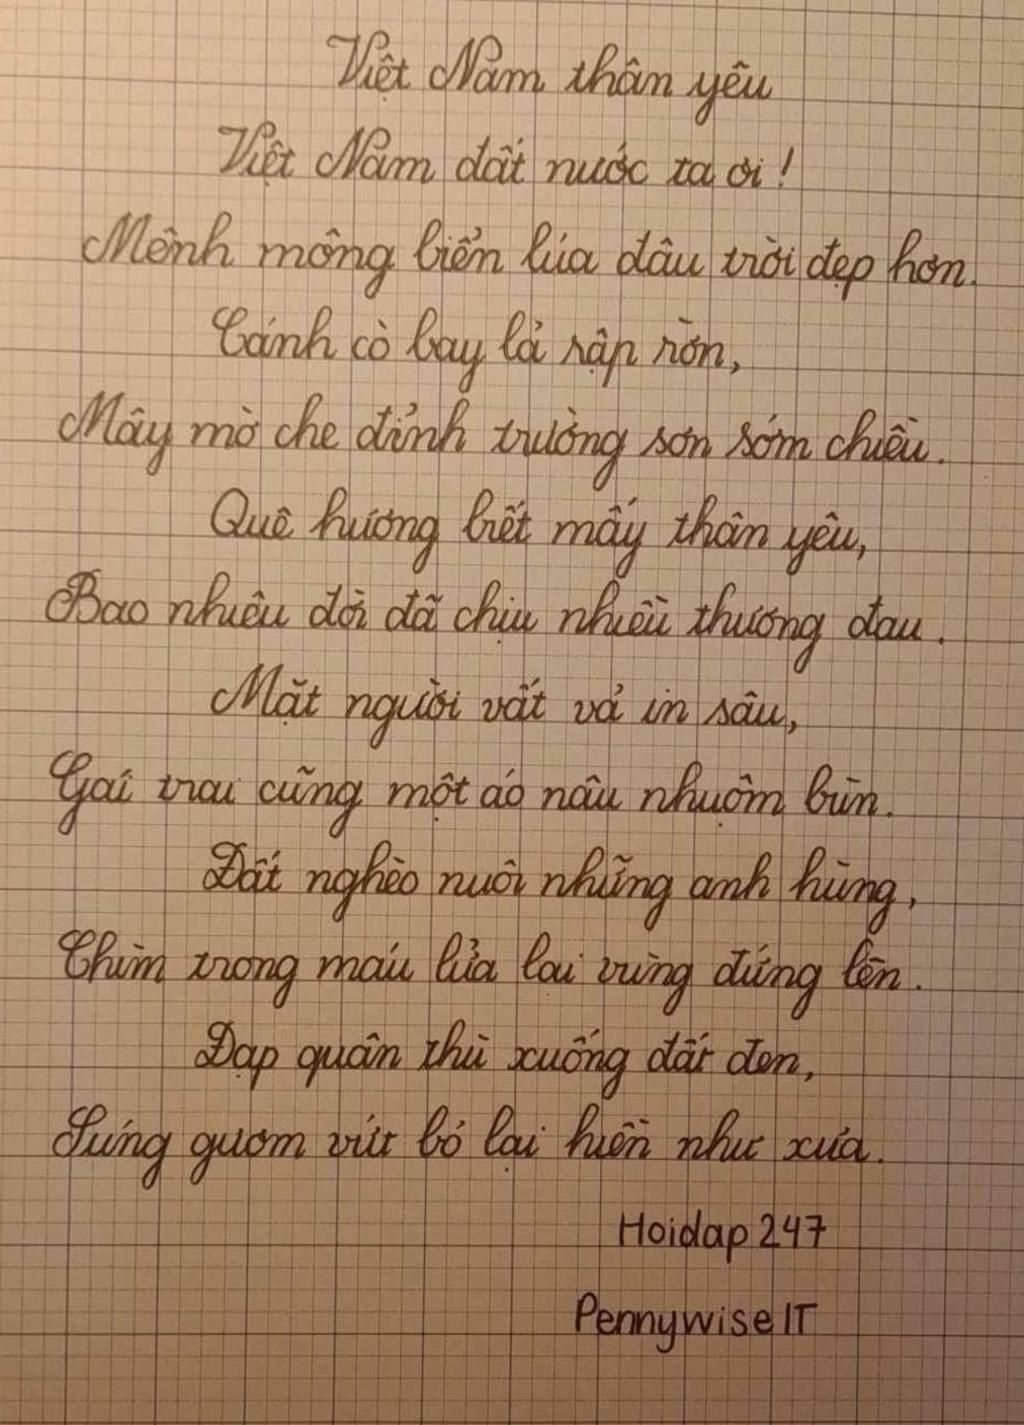 Việt Nam thân yêu
Việt Nam đất nước ta ơi!
Mênh mông biển lúa đâu trời đẹp hơn.
Cánh cò bay lả rập rờn,
Mây mờ che đỉnh trường sơn sớm chiều.
Quê hương biết mấy thân yêu,
Bao nhiêu đời đã chịu nhiều thương đau.
Mặt người vất vả in sâu,
Gái trai cũng một áo nâu nhuộm bùn.
Đất nghèo nuôi những anh hùng,
Chìm trong máu lửa lại vùng đứng lên.
Đạp quân thù xuống đất đen,
Súng gươm vứt bỏ lại hiền như xưa.
Hoidap247
Pennywise IT